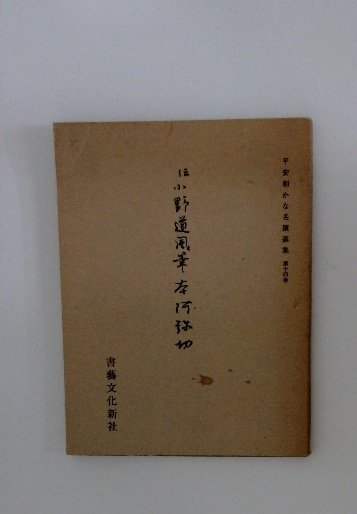 平安朝かな名蹟選集 第十四巻
伝小野道風筆本阿弥切
書藝文化新社